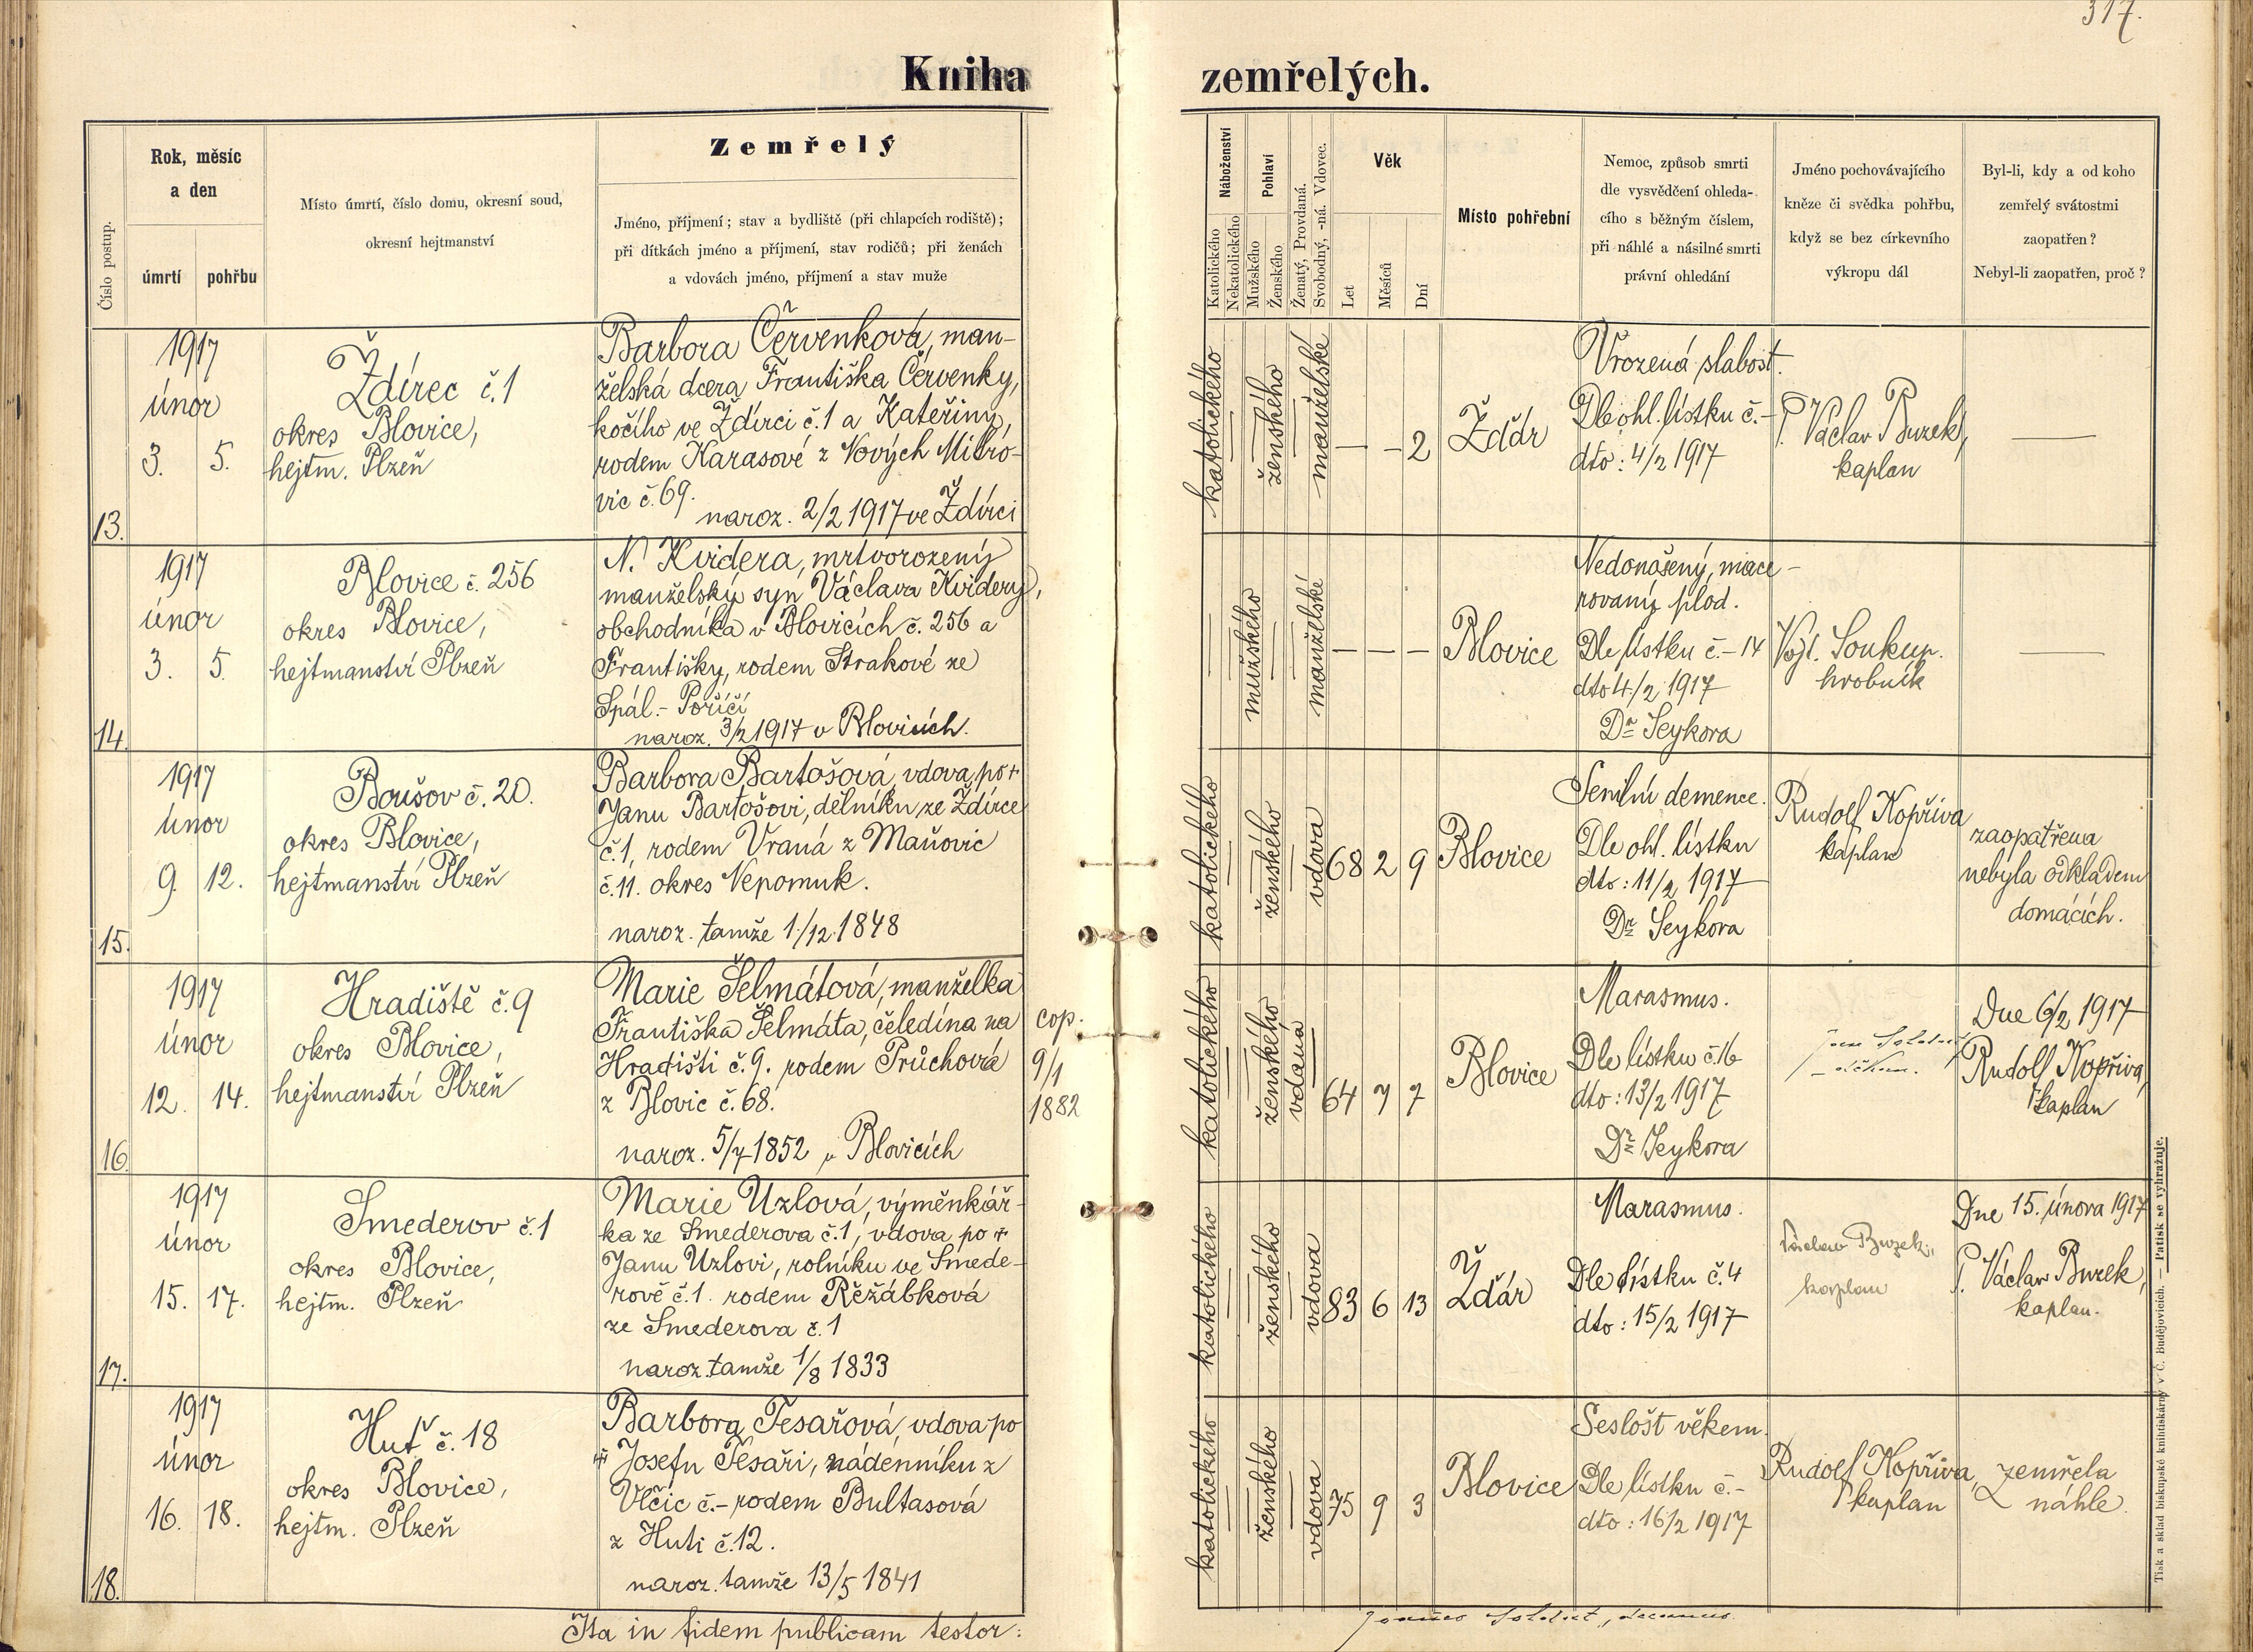 317.
Kniha zemřelých.
Číslo postup.
Rok, měsíc
a den
úmrtí
pohřbu
Místo úmrtí, číslo domu, okresní soud,
okresní hejtmanství
Zemřelý
Jméno, příjmení; stav a bydliště (při chlapcích rodiště);
při dítkách jméno a příjmení, stav rodičů; při ženách
a vdovách jméno, příjmení a stav muže
Náboženství
Katolického
Nekatolického
Pohlaví
Mužského
Ženského
Ženatý, Provdaná.
Svobodný, -ná. Vdovec.
Věk
Let
Měsíců
Dní
Místo pohřební
Nemoc, způsob smrti
dle vysvědčení ohleda-
cího s běžným číslem,
při náhlé a násilné smrti
právní ohledání
Jméno pochovávajícího
kněze či svědka pohřbu,
když se bez církevního
výkropu dál
Byl-li, kdy a od koho
zemřelý svátostmi
zaopatřen?
Nebyl-li zaopatřen, proč?
13.
1917
únor
3. 5.
Ždírec č. 1
okres Blovice,
hejtm. Plzeň
Barbora Červenková, man-
želská dcera Františka Červenky,
kočího ve Ždírci č. 1 a Kateřiny,
rodem Karasové z Nových Mitro-
vic č. 69.
naroz. 2/2 1917 ve Ždírci
katolického
ženského
manželské
— - 2
Žďár
Vrozená slabost.
Dle ohl. lístku č. -
dto: 4/2 1917
P. Václav Buzek,
kaplan
—
14.
1917
únor
3. 5.
Blovice č. 256
okres Blovice,
hejtmanství Plzeň
N. Kvidera, mrtvorozený
manželský syn Václava Kvidery,
obchodníka v Blovicích č. 256 a
Františky, rodem Strakové ze
Spál. - Poříčí
naroz. 3/2 1917 v Blovicích.
mužského
manželské
— — —
Blovice
Nedonošený, mace-
rovaný plod.
Dle lístku č. - 14
dto 4/2 1917
Dr Seykora
Vojt. Soukup.
hrobník
—
15.
1917
únor
9. 12.
Boušov č. 20.
okres Blovice,
hejtmanství Plzeň
Barbora Bartošová, vdova po †
Janu Bartošovi, dělníku ze Ždírce
č. 1, rodem Vraná z Maňovic
č. 11. okres Nepomuk.
naroz. tamže 1/12 1848
katolického
ženského
vdova
68 2 9
Blovice
Senilní demence.
Dle ohl. lístku
dto: 11/2 1917
Dr Seykora
Rudolf Kopřiva
kaplan
zaopatřena
nebyla odkladem
domácích.
16.
1917
únor
12. 14.
Hradiště č. 9
okres Blovice,
hejtmanství Plzeň
Marie Šelmátová, manželka
Františka Šelmáta, čeledína na
Hradišti č. 9. rodem Průchová
z Blovic č. 68.
naroz. 5/7 1852 v Blovicích
cop.
9/1
1882
katolického
ženského
vdaná
64 7 7
Blovice
Marasmus.
Dle lístku č. 16
dto: 13/2 1917
Dr Seykora
Dne 6/2 1917
Rudolf Kopřiva,
kaplan
17.
1917
únor
15. 17.
Smederov č. 1
okres Blovice,
hejtm. Plzeň
Marie Uzlová, výměnkář-
ka ze Smederova č. 1, vdova po †
Janu Uzlovi, rolníku ve Smede-
rově č. 1. rodem Řežábková
ze Smederova č. 1
naroz. tamže 1/8 1833
katolického
ženského
vdova
83 6 13
Žďár
Marasmus.
Dle lístku č. 4
dto: 15/2 1917
Václav Buzek,
kaplan
Dne 15. února 1917
P. Václav Buzek,
kaplan.
18.
1917
únor
16. 18.
Huť č. 18
okres Blovice,
hejtm. Plzeň
Barbora Tesařová, vdova po
† Josefu Tesaři, nádenníku z
Vlčic č. - rodem Bultasová
z Huti č. 12.
naroz. tamže 13/5 1841
katolického
ženského
vdova
75 9 3
Blovice
Sešlost věkem.
Dle lístku č. -
dto: 16/2 1917
Rudolf Kopřiva,
kaplan
zemřela
náhle.
Ita in fidem publicam testor:
decanus.
Tisk a sklad biskupské knihtiskárny v Č. Budějovicích. — Patisk se vyhražuje.